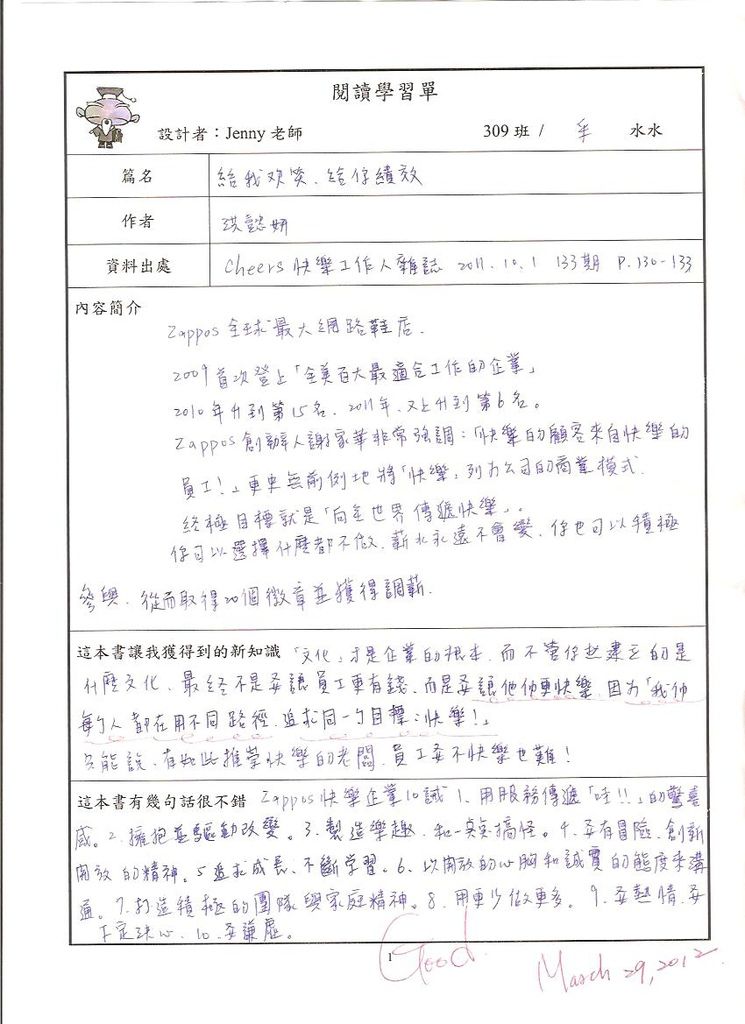 閱讀學習單
設計者：Jenny 老師 309 班 / 水水
篇名 給我欢笑、給你績效
作者 洪懿妍
資料出處 Cheers 快樂工作人雜誌 2011.10.1 133期 P.130-133
內容簡介
Zappos 全球最大網路鞋店.
2009 首次登上「全美百大最適合工作的企業」
2010年升到第15名、2011年、又上升到第6名。
Zappos 創辦人謝家華非常強調：「快樂的顧客來自快樂的
員工！」更史無前例地將「快樂」列为公司的商業模式.
終極目標就是「向全世界傳遞快樂」.
你可以選擇什麼都不做、薪水永遠不會變、你也可以積極
參與、從而取得20個徽章並獲得調薪.
這本書讓我獲得到的新知識 「文化」才是企業的根本、而不管你想建立的是
什麼文化、最終不是要讓員工更有錢、而是要讓他們更快樂、因为「我們
每个人都在用不同路徑、追求同一个目標：快樂！」
只能說、有如此推崇快樂的老闆、員工要不快樂也難！
這本書有幾句話很不錯 Zappos 快樂企業10誡 1. 用服務傳遞「哇!!」的驚喜
感。2. 擁抱並驅動改變。3. 製造樂趣、和一点点搞怪。4. 要有冒險、創新
開放的精神。5 追求成長、不斷學習。6. 以開放的心胸和誠實的態度來溝
通。7. 打造積極的團隊與家庭精神。8. 用更少做更多。9. 要熱情、要
下定決心、10. 要謙虛。
1
Good
March 29, 2012